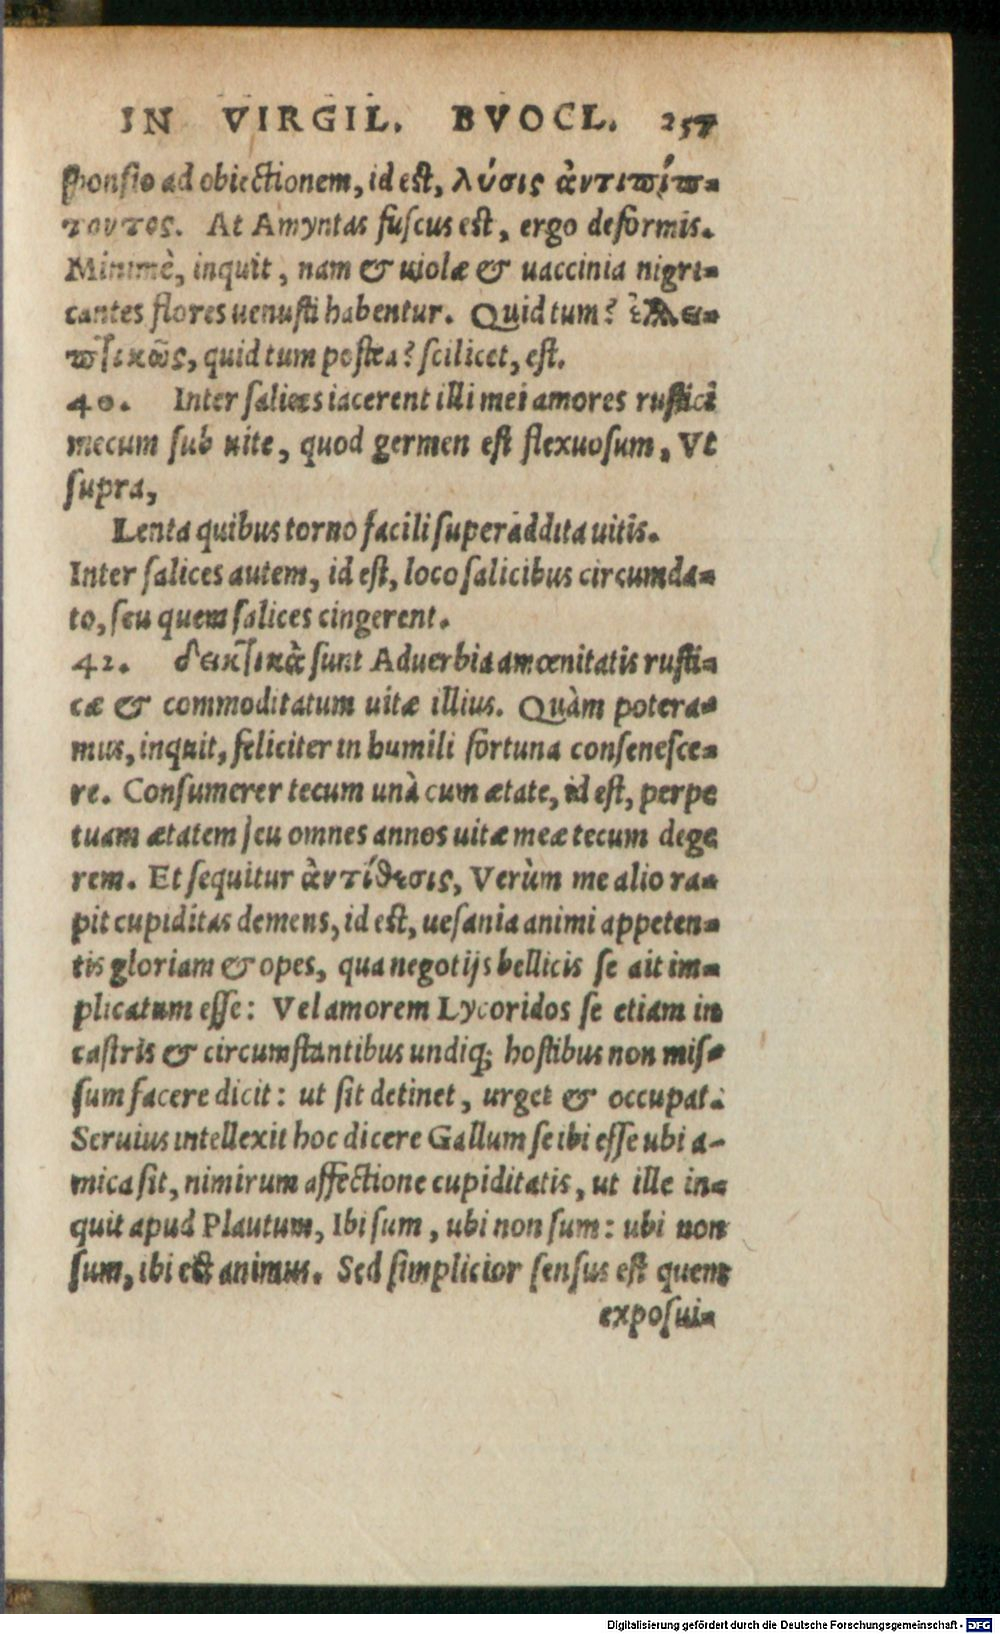 IN VIRGIL. BVOCL. 257
ſponſio ad obiectionem, id eſt, λύσις ἀντιπίπ-
τοντος. At Amyntas fuſcus eſt, ergo deformis.
Minimè, inquit, nam & uiolæ & uaccinia nigri-
cantes flores uenuſti habentur. Quid tum? ἐλλει-
πτικῶς, quid tum poſtea? ſcilicet, eſt.
40. Inter ſalices iacerent illi mei amores ruſtici
mecum ſub uite, quod germen eſt flexuoſum, Vt
ſupra,
Lenta quibus torno facili ſuperaddita uitis.
Inter ſalices autem, id eſt, loco ſalicibus circumda-
to, ſeu quem ſalices cingerent.
42. δεικτικὰ ſunt Aduerbia amœnitatis ruſti-
cæ & commoditatum uitæ illius. Quàm potera-
mus, inquit, feliciter in humili fortuna conſeneſce-
re. Conſumerer tecum unà cum ætate, id eſt, perpe
tuam ætatem ſeu omnes annos uitæ meæ tecum dege
rem. Et ſequitur ἀντίθεσις, Verùm me alio ra-
pit cupiditas demens, id eſt, ueſania animi appeten-
tis gloriam & opes, qua negotijs bellicis ſe ait im-
plicatum eſſe: Vel amorem Lycoridos ſe etiam in
caſtris & circumſtantibus undiq; hoſtibus non miſ-
ſum facere dicit: ut ſit detinet, urget & occupat.
Seruius intellexit hoc dicere Gallum ſe ibi eſſe ubi a-
mica ſit, nimirum affectione cupiditatis, ut ille in-
quit apud Plautum, Ibi ſum, ubi non ſum: ubi non
ſum, ibi eſt animus. Sed ſimplicior ſenſus eſt quem
expoſui-
Digitalisierung gefördert durch die Deutsche Forschungsgemeinschaft - DFG